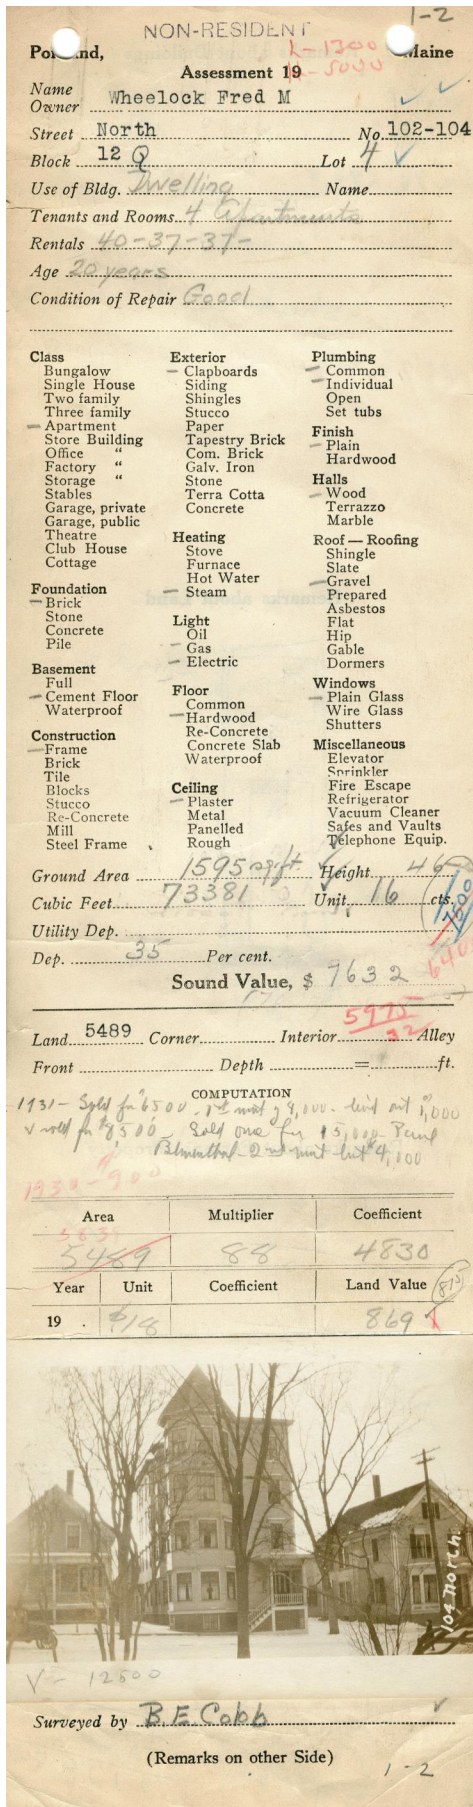 1-2
NON-RESIDENT
L-1300
Portland, Maine
Assessment 19
B-5000
Name
Owner Wheelock Fred M
Street North No. 102-104
Block 12 Q Lot 4
Use of Bldg. Dwelling Name
Tenants and Rooms 4 Apartments
Rentals 40-37-37-
Age 20 years
Condition of Repair Good
Class
Bungalow
Single House
Two family
Three family
Apartment
Store Building
Office "
Factory "
Storage "
Stables
Garage, private
Garage, public
Theatre
Club House
Cottage
Foundation
Brick
Stone
Concrete
Pile
Basement
Full
Cement Floor
Waterproof
Construction
Frame
Brick
Tile
Blocks
Stucco
Re-Concrete
Mill
Steel Frame
Exterior
Clapboards
Siding
Shingles
Stucco
Paper
Tapestry Brick
Com. Brick
Galv. Iron
Stone
Terra Cotta
Concrete
Heating
Stove
Furnace
Hot Water
Steam
Light
Oil
Gas
Electric
Floor
Common
Hardwood
Re-Concrete
Concrete Slab
Waterproof
Ceiling
Plaster
Metal
Panelled
Rough
Plumbing
Common
Individual
Open
Set tubs
Finish
Plain
Hardwood
Halls
Wood
Terrazzo
Marble
Roof — Roofing
Shingle
Slate
Gravel
Prepared
Asbestos
Flat
Hip
Gable
Dormers
Windows
Plain Glass
Wire Glass
Shutters
Miscellaneous
Elevator
Sprinkler
Fire Escape
Refrigerator
Vacuum Cleaner
Safes and Vaults
Telephone Equip.
Ground Area 1595 sq. ft. Height 46
Cubic Feet 73381 Unit 16 cts.
Utility Dep.
Dep. 35 Per cent.
Sound Value, $ 7632
5975
32
Land 5489 Corner Interior Alley
Front Depth = ft.
COMPUTATION
1931 - Sold for $6500
sold for $8500 Sold one for 15,000
Blumenthal - 2nd mort $4,000
1930-900
Area Multiplier Coefficient
5489 88 4830
Year Unit Coefficient Land Value 875
19 . $18 869
104 North.
V - 12500
Surveyed by B.E. Cobb
(Remarks on other Side)
1-2